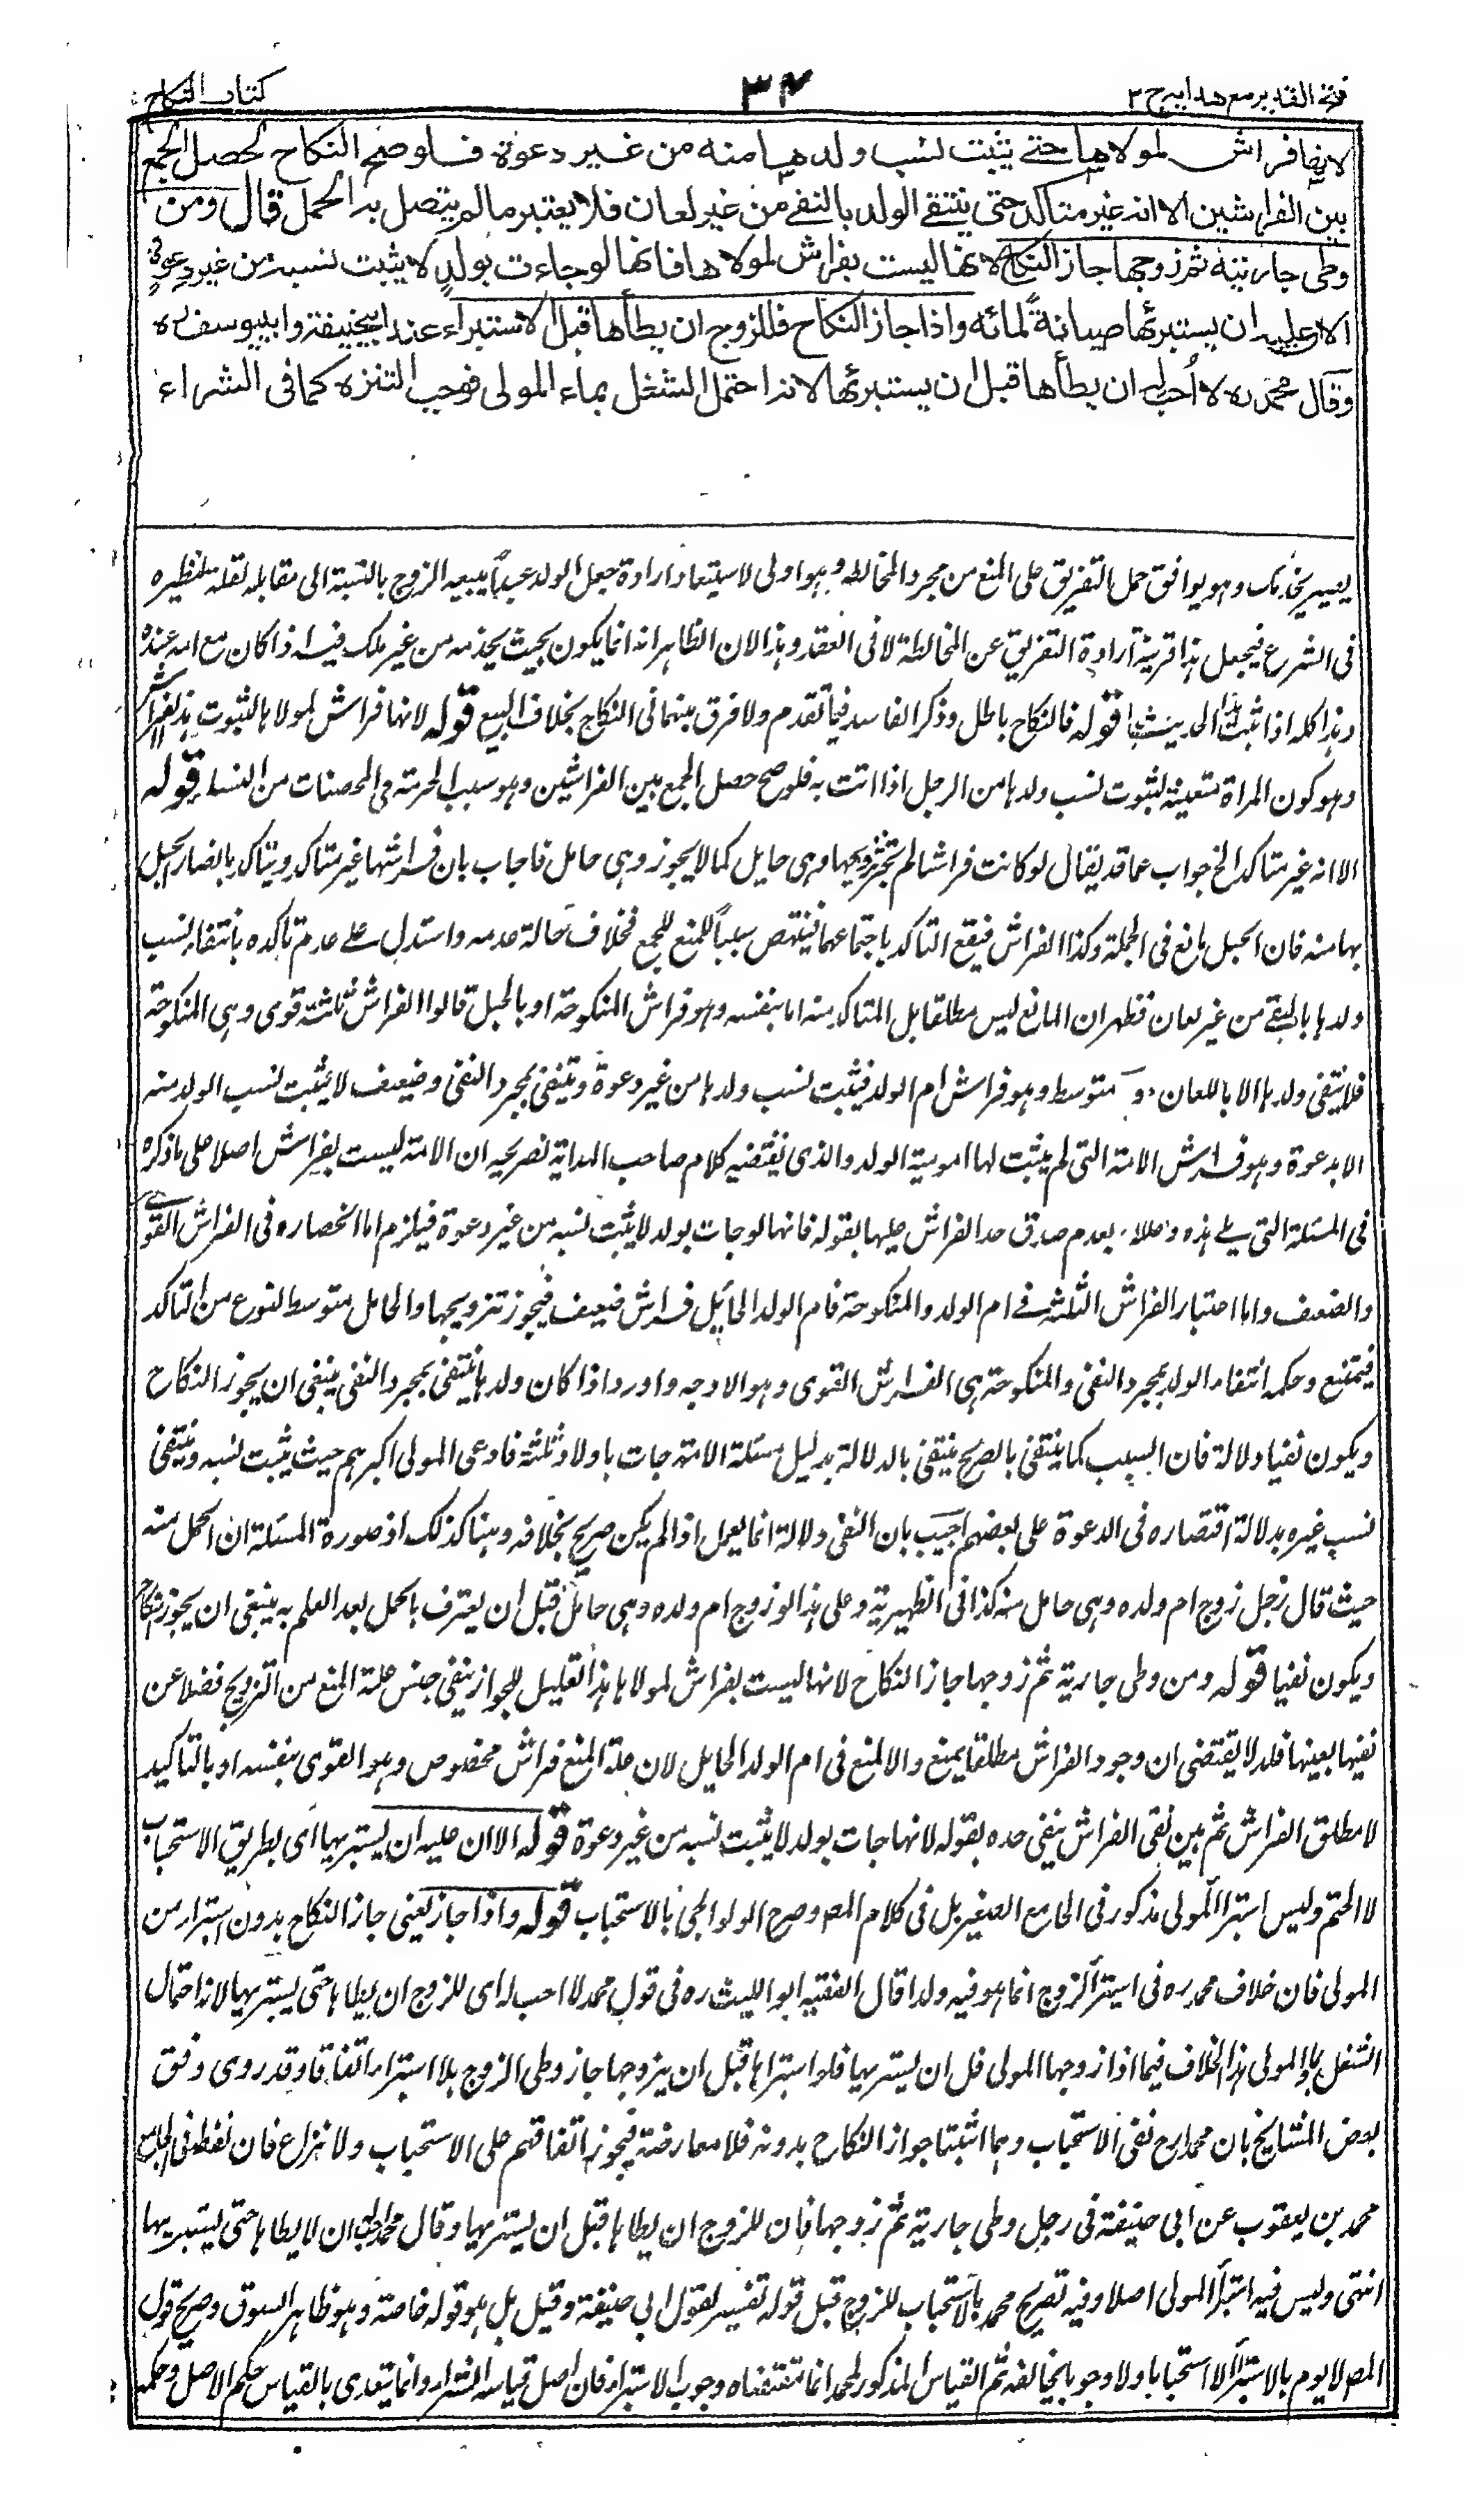 فتح القدير مع هدايه ج ٢
٣٤
كتاب النكاح
لانها فراش لمولاها حتى يثبت نسب ولدها منه من غير دعوة فلو صح النكاح لحصل الجمع
بين الفراشين الا انه غير متاكد حتى ينتفى الولد بالنفى من غير لعان فلا يعتبر مالم يتصل به الحمل قال ومن
وطى جاريته ثم زوجها جاز النكاح لانها ليست بفراش لمولاها فانها لو جاءت بولد لا يثبت نسبه من غير دعوة
الا ان عليه ان يستبرئها صيانةً لمائه واذا جاز النكاح فللزوج ان يطأها قبل الاستبراء عند ابيحنيفة وابييوسف ره
وقال محمد ره لا اُحب له ان يطأها قبل ان يستبرئها لانه احتمل الشغل بماء المولى فوجب التنزه كما فى الشراء
وهو يوافق حمل التفريق على المنع من مجرد المخالطة وهو اولى لاستبعاد ارادة جعل الولد عبداً يبيعه الزوج بالنسبة الى مقابله لقلة نظيره
فى الشرع فيجعل هذا قرينة ارادة التفريق عن المخالطة لا فى العقد وهذا لان الظاهر انه انما يكون بحيث يحذمه من غير ملك فيه اذا كان مع امه عنده
وهذا كله اذا ثبت الحديث قوله فالنكاح باطل وذكر الفاسد فيما تقدم ولا فرق بينهما فى النكاح بخلاف البيع قوله لانها فراش لمولاها لثبوت هذا الفراش
وهو كون المراة متعينة لثبوت نسب ولدها من الرجل اذا اتت به فلو صح حصل الجمع بين الفراشين وهو سبب الحرمة فى المحصنات من النساء قوله
الا انه غير متاكد الخ جواب عما قد يقال لو كانت فراشا لم يجز تزويجها وهى حايل كما لا يجوز وهى حامل فاجاب بان فراشها غير متاكد ويتاكد باتصال الحبل
بها منه فان الحبل مانع فى الجملة وكذا الفراش فيقع التاكد باجتماعهما فينتهض سبباً للمنع للجمع بخلاف حالة عدمه واستدل على عدم تاكده بانتفاء نسب
ولدها بالنفى من غير لعان فظهر ان المانع ليس مطلقا بل المتاكد منه اما بنفسه وهو فراش المنكوحة او بالحبل قالوا الفراش ثلثة قوى وهى المنكوحة
فلا ينتفى ولدها الا باللعان و متوسط وهو فراش ام الولد فيثبت نسب ولدها من غير دعوة وينتفى بمجرد النفى وضعيف لا يثبت نسب الولد منه
الا بدعوة وهو فراش الامة التى لم يثبت لها امومية الولد والذى يقتضيه كلام صاحب الهداية تصريحه ان الامة ليست بفراش اصلا على ما ذكره
فى المسئلة التى يلى هذه وعلله بعدم صدق حد الفراش عليها بقوله فانها لو جات بولد لا يثبت نسبه من غير دعوة فيلزم اما انحصاره فى الفراش القوى
والضعيف واما اعتبار الفراش الثلثة فى ام الولد والمنكوحة فام الولد الحايل فراش ضعيف فيجوز تزويجها والحامل متوسط لنوع من التاكد
فيمتنع وحكمه انتفاء الولد بمجرد النفى والمنكوحة هى الفراش القوى وهو الاوجه واورد اذا كان ولدها ينتفى بمجرد النفى ينبغى ان يجوز النكاح
ويكون نفيا دلالة فان النسب كما ينتفى بالصريح ينتفى بالدلالة بدليل مسئلة الامة جات باولاد ثلثة فادعى المولى اكبرهم حيث يثبت نسبه وينتفى
نسب غيره بدلالة اقتصاره فى الدعوة على بعضهم اجيب بان النفى دلالة انما يعمل اذا لم يكن صريح بخلافه وهنا كذلك اذ صورة المسئلة ان الحمل منه
حيث قال رجل زوج ام ولده وهى حامل منه كذا فى الظهيرية وعلى هذا لو زوج ام ولده وهى حامل قبل ان يعترف بالحمل بعد العلم به ينبغى ان يجوز النكاح
ويكون نفيا قوله ومن وطى جارية ثم زوجها جاز النكاح لانها ليست بفراش لمولاها هذا التعليل للجواز ينفى جنس علة المنع من التزويج فضلا عن
نفيها بعينها فلذا لا يقتضى ان وجود الفراش مطلقا يمنع والا لمنع فى ام الولد الحايل لان علة المنع فراش مخصوص وهو القوى بنفسه او بالتاكيد
لا مطلق الفراش ثم بين نفى الفراش بنفى حده بقوله لانها جات بولد لا يثبت نسبه من غير دعوة قوله الا ان عليه ان يستبريها اى بطريق الاستحباب
لا الحتم وليس استبراء المولى مذكور فى الجامع الصغير بل فى كلام المصه وصرح الولوالجى بالاستحباب قوله واذا جاز يعنى جاز النكاح بدون استبراء من
المولى فان خلاف محمد ره فى استبراء الزوج انما هو فيه ولذا قال الفقيه ابو الليث ره فى قول محمد لا احب له اى للزوج ان يطاها حتى يستبريها لانه احتمال
الشغل بماء المولى هذا الخلاف فيما اذا زوجها المولى قبل ان يستبريها فلو استبراها قبل ان يزوجها جاز وطى الزوج بلا استبراء اتفاقا وقد روى وفق
بعض المشايخ بان محمدا رح نفى الاستحباب وهما اثبتا جواز النكاح بدونه فلا معارضة فيجوز اتفاقهم على الاستحباب ولا نزاع فان لفظه فى الجامع
محمد بن يعقوب عن ابى حنيفة فى رجل وطى جارية ثم زوجها فان للزوج ان يطاها قبل ان يستبريها وقال محمد احب ان لا يطاها حتى يستبريها
انتهى وليس فيه استبراء المولى اصلا وفيه تصريح محمد بالاستحباب للزوج قبل قوله تفسير لقول ابى حنيفة وقيل بل هو قوله خاصة وهو ظاهر السوق وصريح قول
المصه لا يوم بالاستبراء لا استحبابا ولا وجوبا يخالفه ثم القياس المذكور لمحمد انما مقتضاه وجوب الاستبراء فان اصل قياسه الشراء وانما يتعدى بالقياس حكم الاصل وحكمه